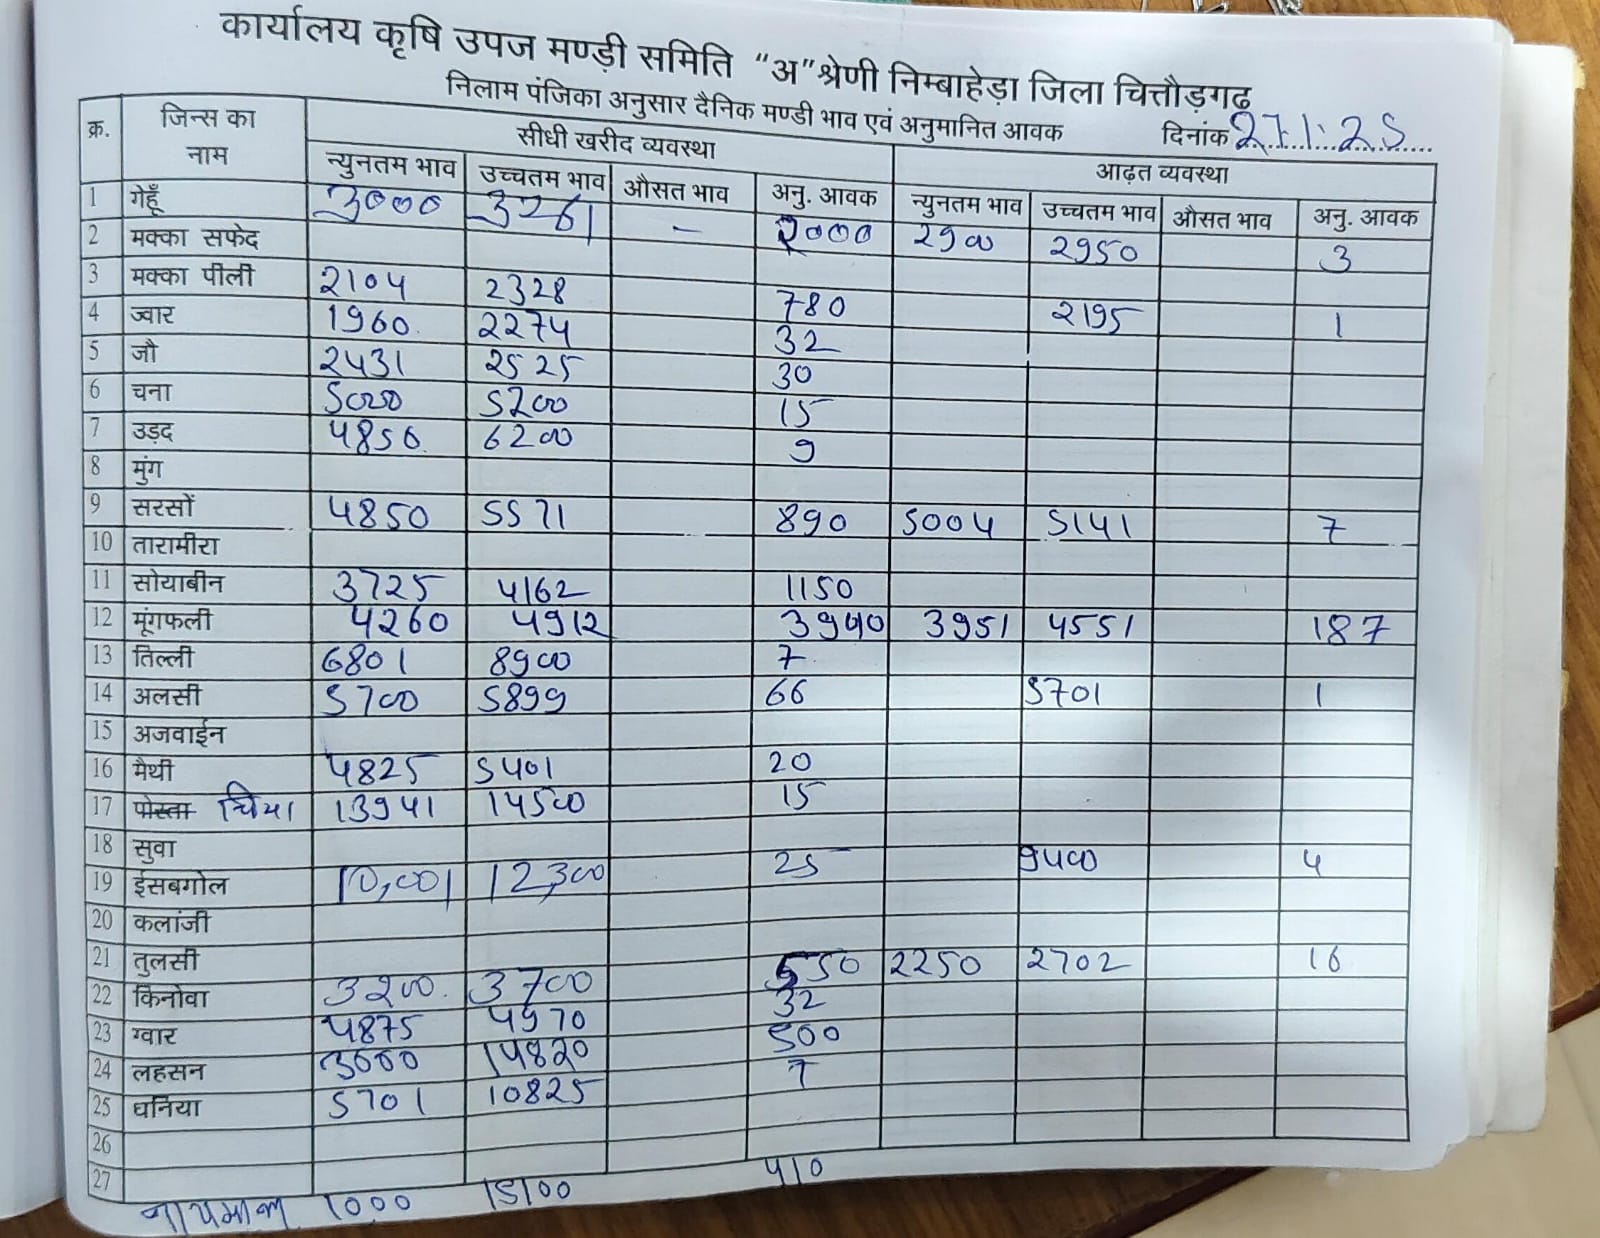 कार्यालय कृषि उपज मण्डी समिति "अ" श्रेणी निम्बाहेड़ा जिला चित्तौड़गढ़
निलाम पंजिका अनुसार दैनिक मण्डी भाव एवं अनुमानित आवक दिनांक 27.1.25
क्र. जिन्स का नाम सीधी खरीद व्यवस्था आढ़त व्यवस्था
न्युनतम भाव उच्चतम भाव औसत भाव अनु. आवक न्युनतम भाव उच्चतम भाव औसत भाव अनु. आवक
1 गेहूँ 3000 3261 - 2000 2900 2950 3
2 मक्का सफेद
3 मक्का पीली 2104 2328 780 2195 1
4 ज्वार 1960 2274 32
5 जौ 2431 2525 30
6 चना 5000 5200 15
7 उड़द 4850 6200 9
8 मुंग
9 सरसों 4850 5571 890 5004 5141 7
10 तारामीरा
11 सोयाबीन 3725 4162 1150
12 मूंगफली 4260 4912 3940 3951 4551 187
13 तिल्ली 6801 8900 7
14 अलसी 5700 5899 66 5701 1
15 अजवाईन
16 मैथी 4825 5401 20
17 पोस्ता चिया 13941 14500 15
18 सुवा
19 ईसबगोल 10,001 12,300 25 9400 4
20 कलांजी
21 तुलसी
22 किनोवा 3200 3700 550 2250 2702 16
23 ग्वार 4875 4970 32
24 लहसन 3000 14820 500
25 धनिया 5701 10825 7
26
27
1000 15100 410